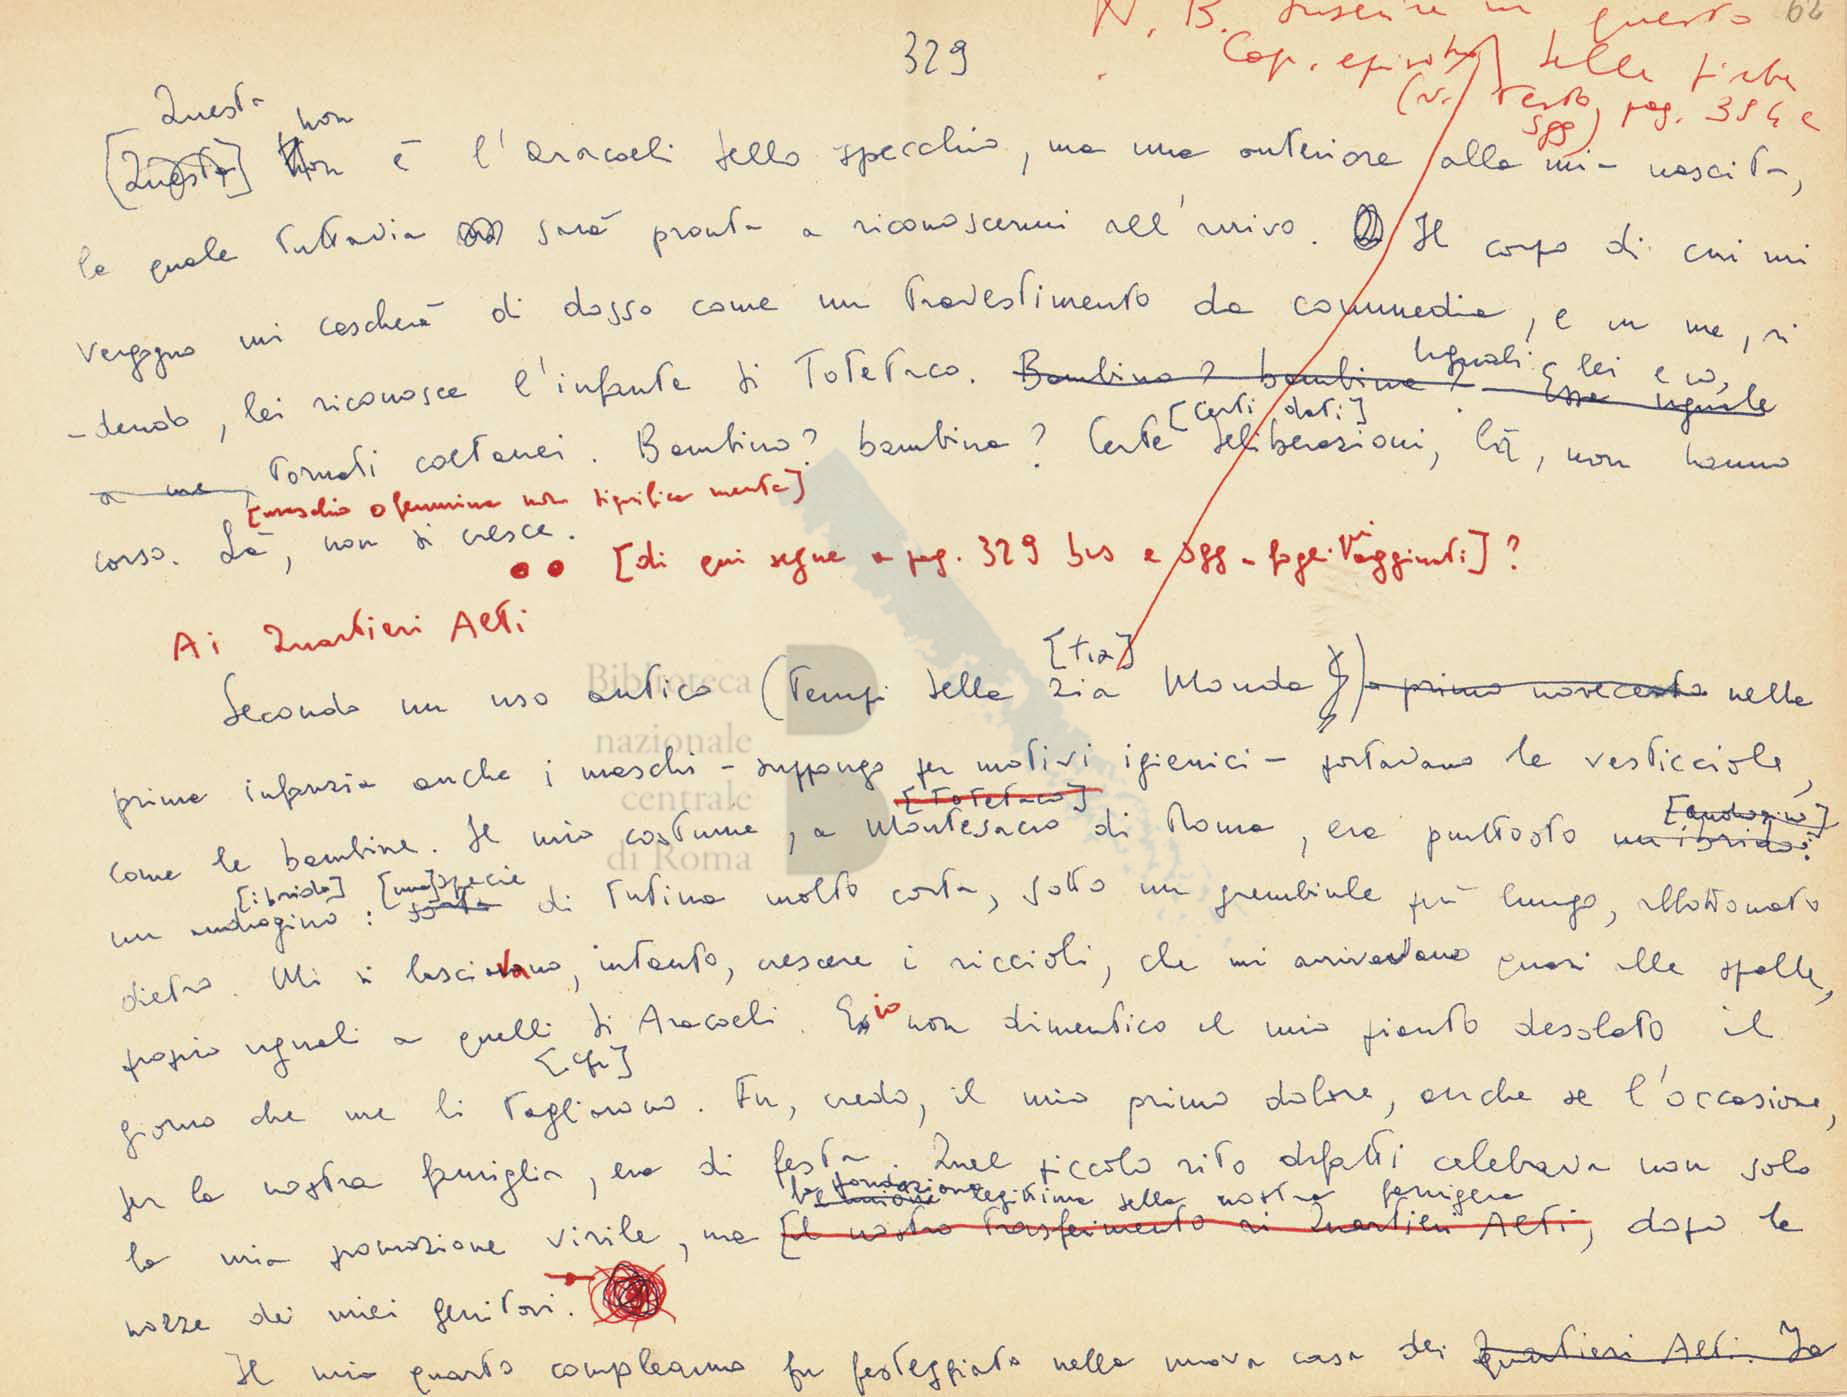 62
N. B. Inserire in questo
329
Cap. episodio della fiaba
(v. testo, pag. 354 e
sgg)
Questa non
[Questa] Non è l'Aracoeli dello specchio, ma una anteriore alla mia nascita,
la quale tuttavia sarà pronta a riconoscermi all'arrivo. Il corpo di cui mi
vergogno mi cascherà di dosso come un travestimento da commedia, e in me, ri
-dendo, lei riconosce l'infante di Totetaco. Bambino? bambina? Essa uguale
Uguali, lei e io,
a me, tornati coetanei. Bambino? bambina? Certe deliberazioni, là, non hanno
[Certi dati]
[maschio o femmina non significa niente]
corso. Là, non si cresce.
[di qui segue a pag. 329 bis e sgg - fogli aggiunti] ?
Ai Quartieri Alti
[tia]
Secondo un uso antico (tempi della zia Monda) a primo novecento nella
prima infanzia anche i maschi - suppongo per motivi igienici - portavano le vesticciole,
[Totetaco]
come le bambine. Il mio costume, a Montesacro di Roma, era piuttosto un ibrido:
[androgino]
[ibrido] [una] specie
un androgino: sorta di tutina molto corta, sotto un grembiule più lungo, abbottonato
dietro. Mi si lasciavano, intanto, crescere i riccioli, che mi arrivavano quasi alle spalle,
proprio uguali a quelli di Aracoeli. E io non dimentico il mio pianto desolato il
[cfr]
giorno che me li tagliarono. Fu, credo, il mio primo dolore, anche se l'occasione,
per la nostra famiglia, era di festa. Quel piccolo rito difatti celebrava non solo
la fondazione legittima della nostra famiglia
la mia promozione virile, ma [il nostro trasferimento ai Quartieri Alti, dopo le
nozze dei miei genitori.
Il mio quarto compleanno fu festeggiato nella nuova casa dei Quartieri Alti. Io
Biblioteca
nazionale
centrale
di Roma